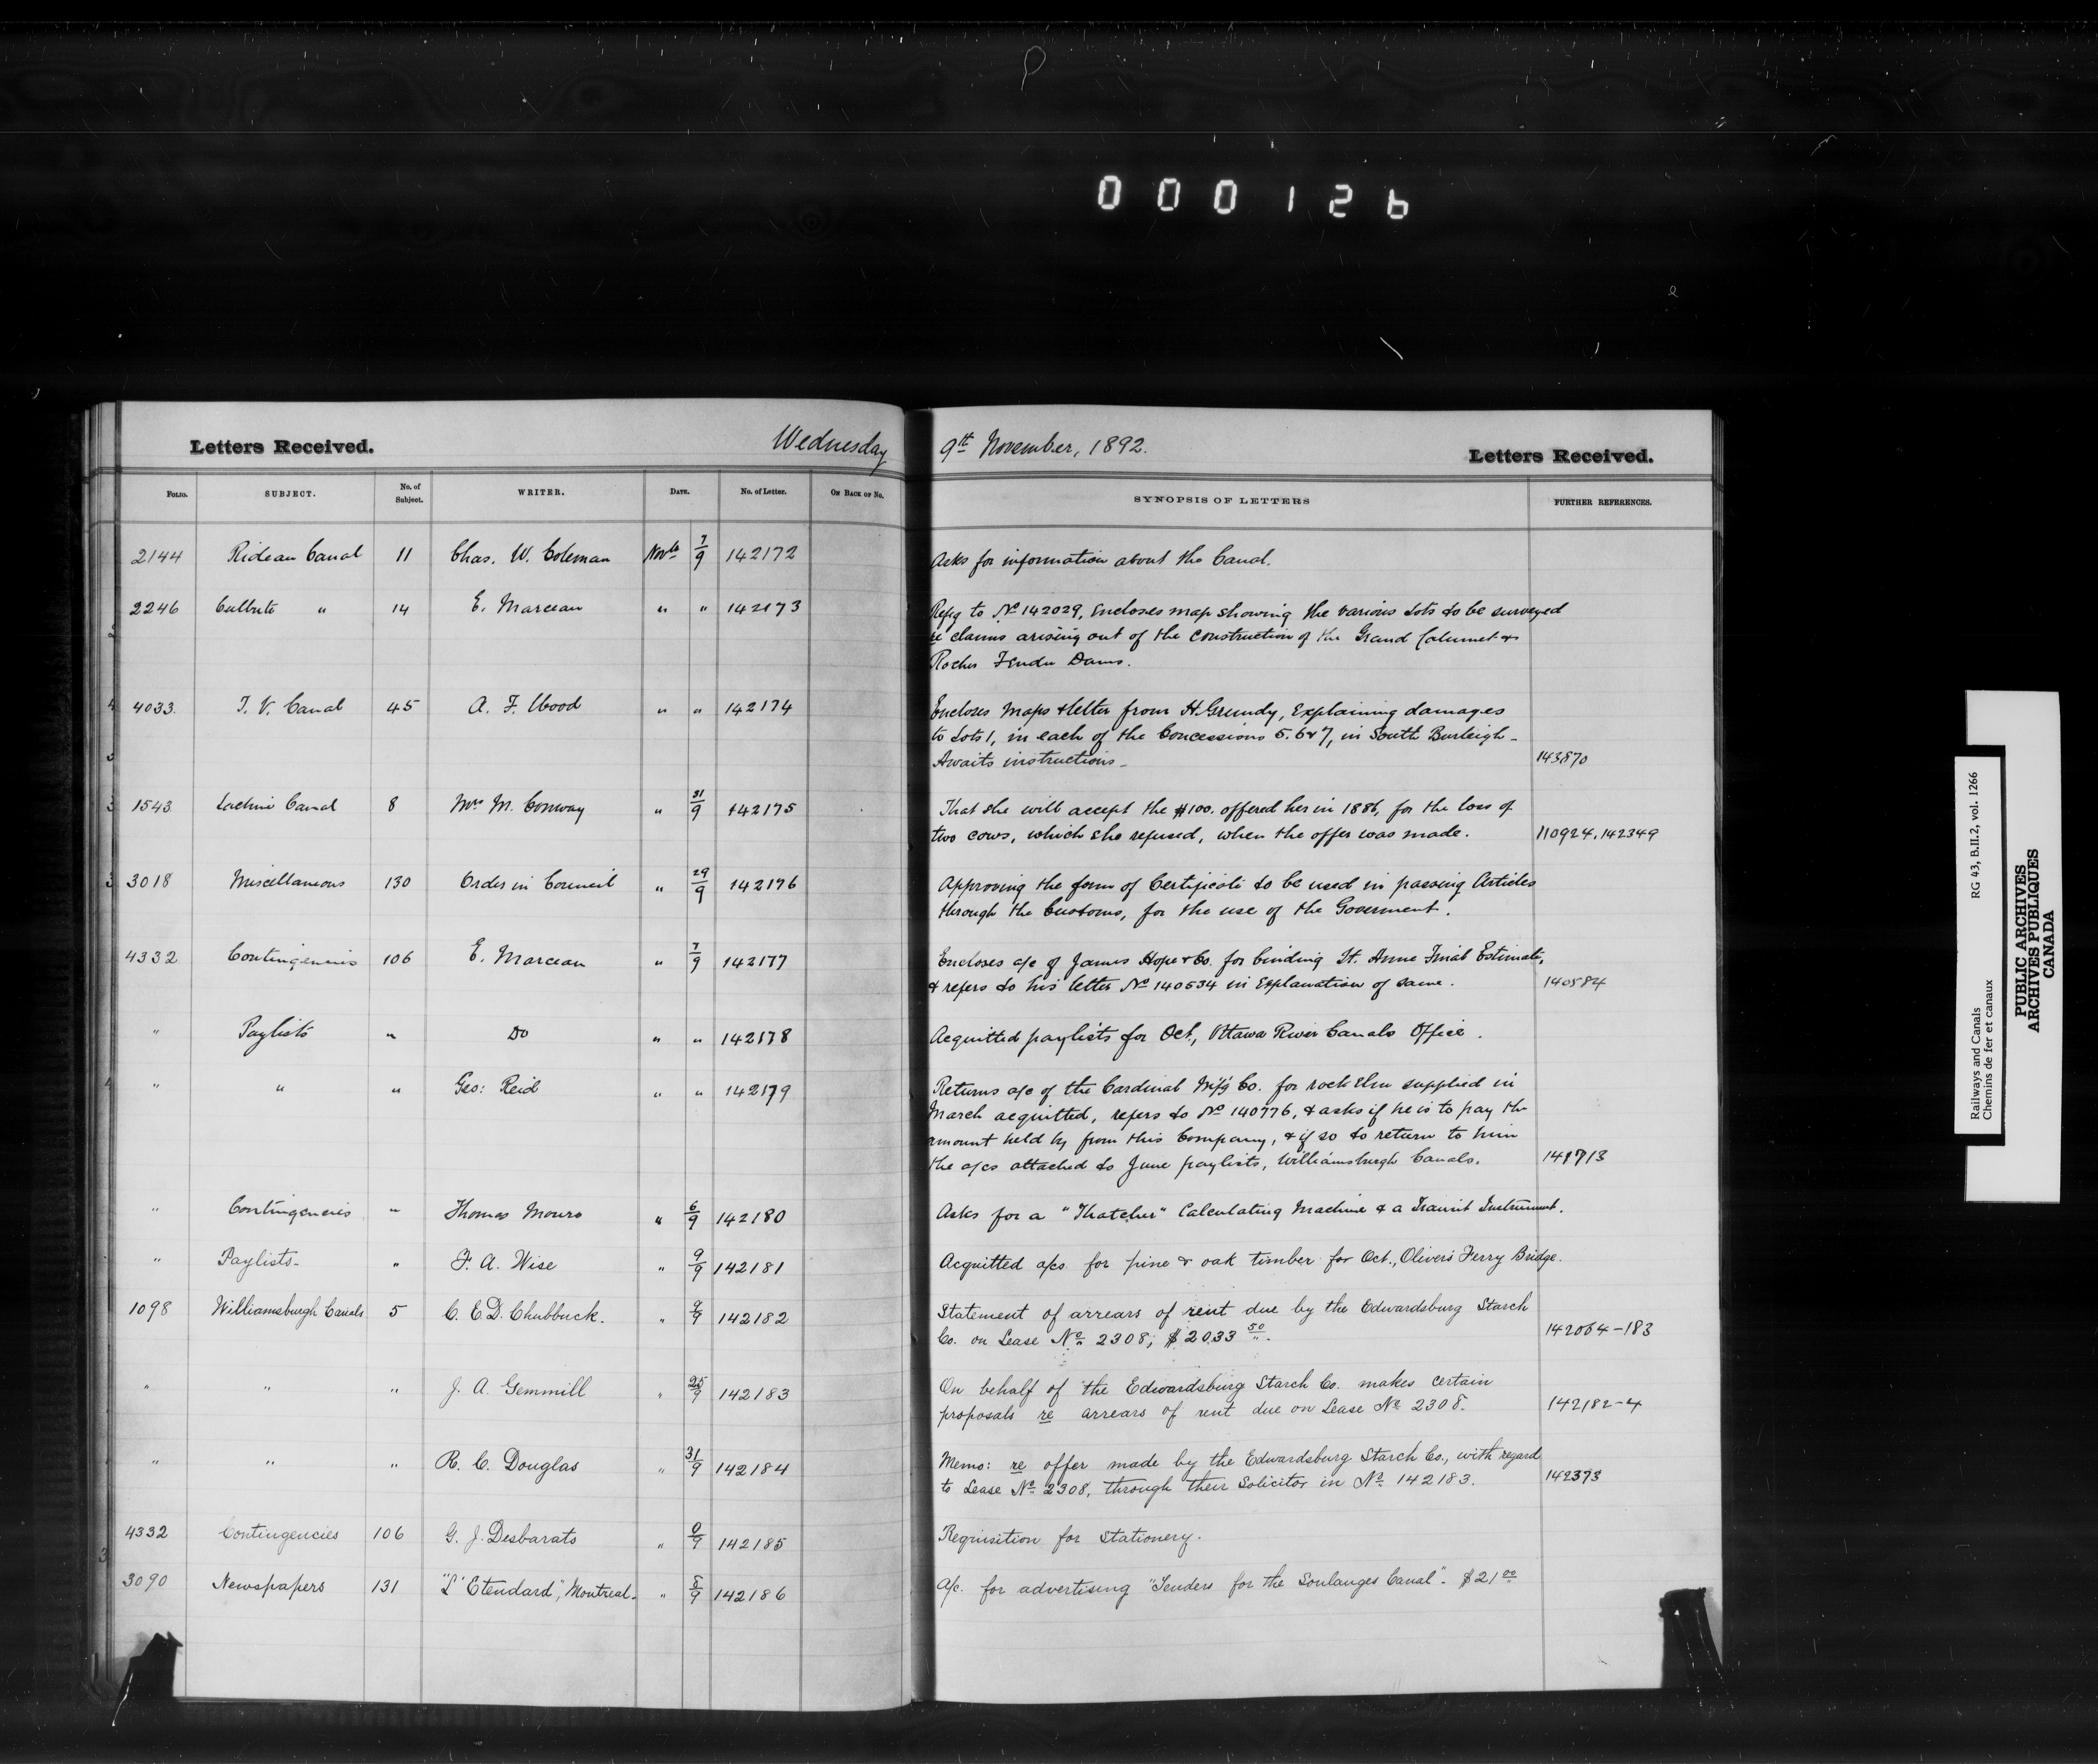 000126
Letters Received.
Wednesday
9th November, 1892.
Letters Received.
FOLIO. SUBJECT. No. of Subject. WRITER. DATE. No. of Letter. ON BACK OF NO. SYNOPSIS OF LETTERS FURTHER REFERENCES.
2144 Rideau Canal 11 Chas. W. Coleman Novbr 7/9 142172 Asks for information about the Canal.
2246 Culbute " 14 E. Marceau " " 142173 Refg to No 142029, Encloses map showing the various Lots to be surveyed
re claims arising out of the construction of the Grand Calumet &
Rocher Fendu Dams.
4033. T. V. Canal 45 A. F. Wood " " 142174 Encloses maps & letter from H. Grundy, Explaining damages
to Lots 1, in each of the Concessions 5. 6 & 7, in South Burleigh -
Awaits instructions - 143870
1543 Lachine Canal 8 Mrs M. Conway " 31/9 142175 That she will accept the $100. offered her in 1886, for the loss of
two cows, which she refused, when the offer was made. 110924, 142349
3018 Miscellaneous 130 Order in Council " 29/9 142176 Approving the form of Certificate to be used in passing Articles
through the Customs, for the use of the Goverment.
4332 Contingencies 106 E. Marceau " 7/9 142177 Encloses a/c of James Hope & Co. for binding St. Anne Final Estimate,
& refers to his letter No 140534 in Explanation of same. 140584
" Paylists " Do " " 142178 Acquitted paylists for Oct, Ottawa River Canals Office.
" " " Geo: Reid " " 142179 Returns a/c of the Cardinal M'f'g Co. for rock Elm supplied in
March acquitted, refers to No 140776, & asks if he is to pay the
amount held by from this Company, & if so to return to him
the a/cs attached to June paylists, Williamsburgh Canals. 141713
" Contingencies " Thomas Monro " 6/9 142180 Asks for a "Thatcher" Calculating Machine & a Transit Instrument.
" Paylists - " F. A. Wise " 9/9 142181 Acquitted a/cs for pine & oak timber for Oct., Olivers Ferry Bridge.
1098 Williamsburgh Canals 5 C. E. D. Chubbuck. " 9/9 142182 Statement of arrears of rent due by the Edwardsburg Starch
Co. on Lease No 2308; $2033 50. 142064-183
" " " J. A. Gemmill " 25/9 142183 On behalf of the Edwardsburg Starch Co. makes certain
proposals re arrears of rent due on Lease No 2308. 142182-4
" " " R. C. Douglas " 31/9 142184 Memo: re offer made by the Edwardsburg Starch Co., with regard
to Lease No 2308, through their Solicitor in No 142183. 142373
4332 Contingencies 106 G. J. Desbarats " 142185 Requisition for Stationery.
3090 Newspapers 131 "L' Etendard", Montreal. " 8/9 142186 A/c. for advertising "Tenders for the Soulanges Canal". $21 00
Railways and Canals RG 43, B.II.2, vol. 1266
Chemins de fer et canaux
PUBLIC ARCHIVES
ARCHIVES PUBLIQUES
CANADA